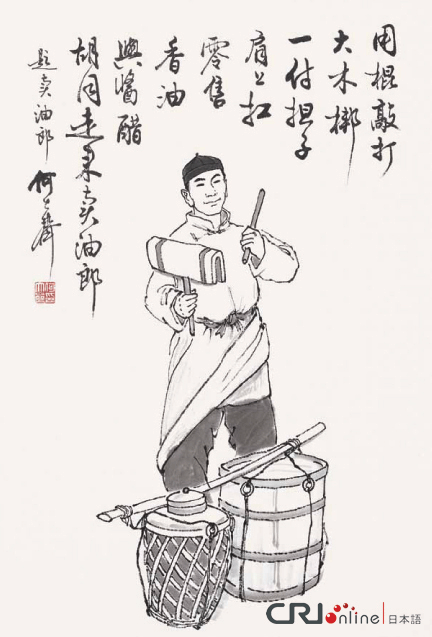 用棍敲打
大木梆
一付担子
肩上扛
零售
香油
與醬醋
胡同走来卖油郎
题卖油郎 何大齊
CRI online 日本語